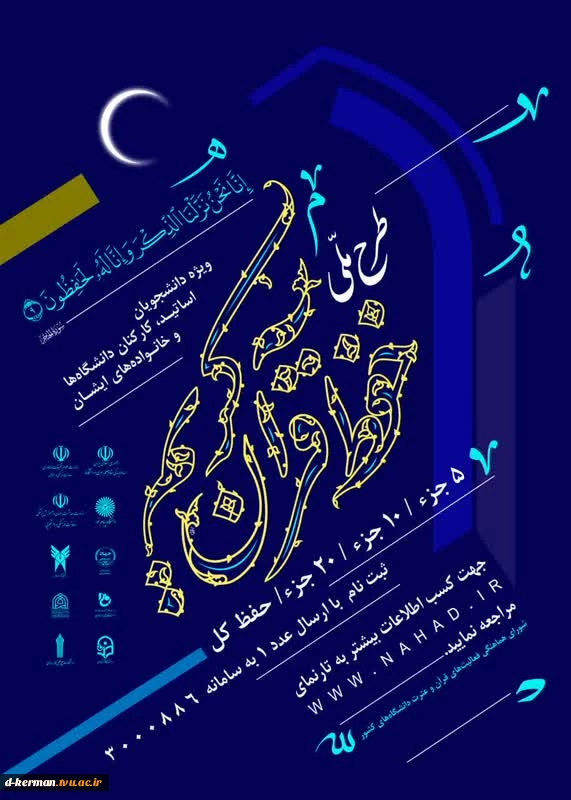 إِنَّا نَحْنُ نَزَّلْنَا الذِّكْرَ وَإِنَّا لَهُ لَحَافِظُونَ
طرح ملّی
حفظ قرآن کریم
ویژه دانشجویان
اساتید، کارکنان دانشگاه‌ها
و خانواده‌های ایشان
۵ جزء / ۱۰ جزء / ۲۰ جزء / حفظ کل
ثبت نام با ارسال عدد ۱ به سامانه ۳۰۰۰۸۸۶
جهت کسب اطلاعات بیشتر به تارنمای
WWW.NAHAD.IR
مراجعه نمایید.
شورای هماهنگی فعالیت‌های قرآن و عترت دانشگاه‌های کشور
d-kerman.tvu.ac.ir